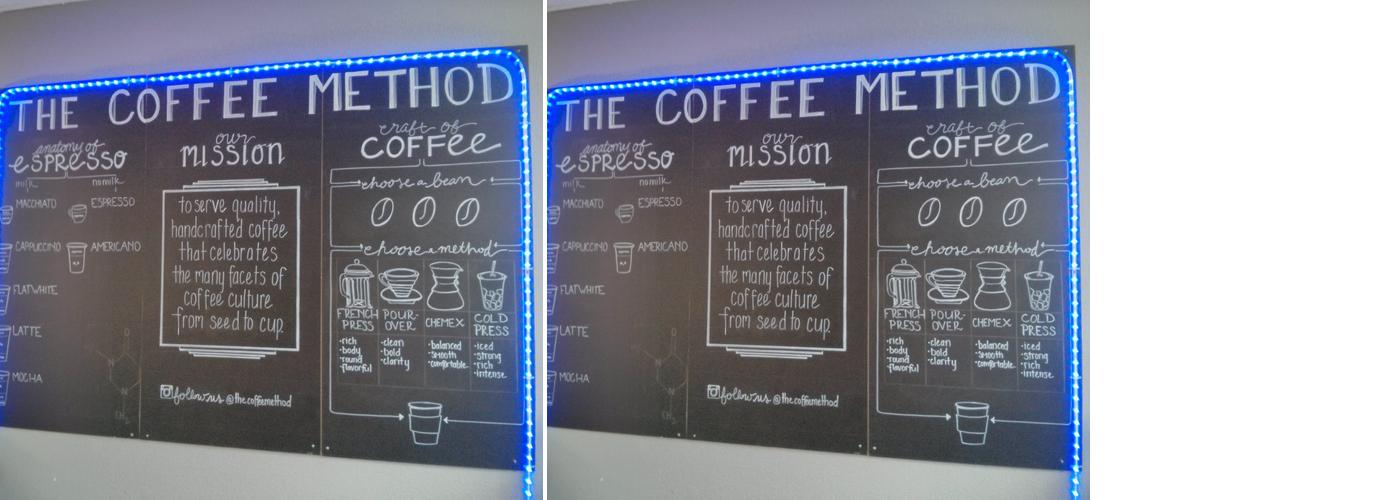 THE COFFEE METHOD
anatomy of
eSPReSSO
milk
no milk
MACCHIATO
ESPRESSO
CAPPUCCINO
AMERICANO
FLAT WHITE
LATTE
MOCHA
our
mission
to serve quality,
handcrafted coffee
that celebrates
the many facets of
coffee culture
from seed to cup.
follow us @thecoffeemethod
craft of
COFFee
choose a bean
choose a method
FRENCH
PRESS
POUR-
OVER
CHEMEX
COLD
PRESS
·rich
·body
·round
·flavorful
·clean
·bold
·clarity
·balanced
·smooth
·comfortable
·iced
·strong
·rich
·intense
THE COFFEE METHOD
anatomy of
eSPReSSO
milk
no milk
MACCHIATO
ESPRESSO
CAPPUCCINO
AMERICANO
FLAT WHITE
LATTE
MOCHA
our
mission
to serve quality,
handcrafted coffee
that celebrates
the many facets of
coffee culture
from seed to cup.
follow us @thecoffeemethod
craft of
COFFee
choose a bean
choose a method
FRENCH
PRESS
POUR-
OVER
CHEMEX
COLD
PRESS
·rich
·body
·round
·flavorful
·clean
·bold
·clarity
·balanced
·smooth
·comfortable
·iced
·strong
·rich
·intense